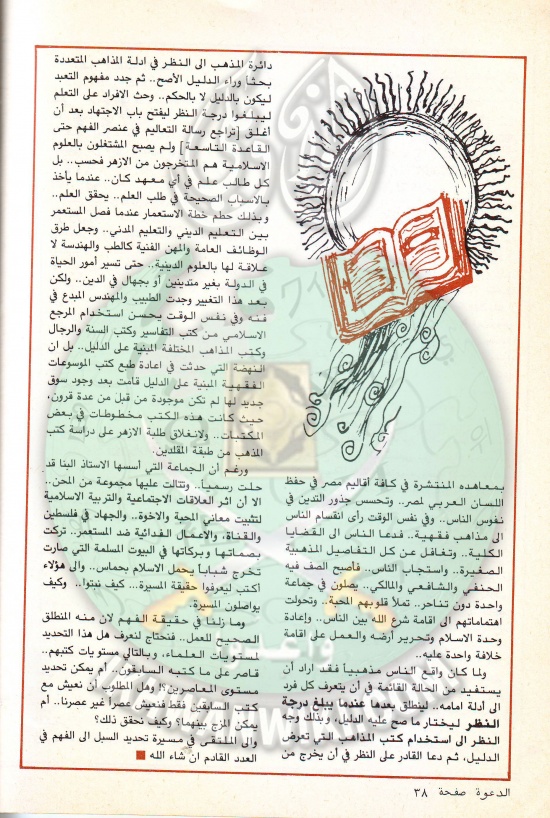 بمعاهده المنتشرة في كافة أقاليم مصر في حفظ
اللسان العربي لمصر.. وتحسس جذور التدين في
نفوس الناس.. وفي نفس الوقت رأى انقسام الناس
الى مذاهب فقهية.. فدعا الناس الى القضايا
الكلية.. وتغافل عن كل التفاصيل المذهبية
الصغيرة.. واستجاب الناس.. فأصبح الصف فيه
الحنفي والشافعي والمالكي.. يصلون في جماعة
واحدة دون تناحر.. تملأ قلوبهم المحبة.. وتحولت
اهتماماتهم الى اقامة شرع الله بين الناس.. وإعادة
وحدة الاسلام وتحرير أرضه والعمل على اقامة
خلافة واحدة عليه..
ولما كان واقع الناس مذهبياً فقد اراد أن
يستفيد من الحالة القائمة في أن يتعرف كل فرد
الى أدلة امامه.. لينطلق بعدها عندما يبلغ درجة
النظر ليختار ما صح عليه الدليل، وبذلك وجه
النظر الى استخدام كتب المذاهب التي تعرض
الدليل، ثم دعا القادر على النظر في أن يخرج من
دائرة المذهب الى النظر في ادلة المذاهب المتعددة
بحثاً وراء الدليل الأصح.. ثم جدد مفهوم التعبد
ليكون بالدليل لا بالحكم.. وحث الافراد على التعلم
ليبلغوا درجة النظر ليفتح باب الاجتهاد بعد أن
أغلق [تراجع رسالة التعاليم في عنصر الفهم حتى
القاعدة التاسعة] ولم يصبح المشتغلون بالعلوم
الاسلامية هم المتخرجون من الازهر فحسب.. بل
كل طالب علم في أي معهد كان.. عندما يأخذ
بالاسباب الصحيحة في طلب العلم.. يحقق العلم..
وبذلك حطم خطة الاستعمار عندما فصل المستعمر
بين التعليم الديني والتعليم المدني.. وجعل طرق
الوظائف العامة والمهن الفنية كالطب والهندسة لا
علاقة لها بالعلوم الدينية.. حتى تسير أمور الحياة
في الدولة بغير متدينين أو بجهال في الدين.. ولكن
بعد هذا التغيير وجدت الطبيب والمهندس المبدع في
فنه وفي نفس الوقت يحسن استخدام المرجع
الاسلامي من كتب التفاسير وكتب السنة والرجال
وكتب المذاهب المختلفة المبنية على الدليل.. بل ان
النهضة التي حدثت في اعادة طبع كتب الموسوعات
الفقهية المبنية على الدليل قامت بعد وجود سوق
جديد لها لم تكن موجودة من قبل من عدة قرون،
حيث كانت هذه الكتب مخطوطات في بعض
المكتبات.. ولانغلاق طلبة الازهر على دراسة كتب
المذهب من طبقة المقلدين.
ورغم أن الجماعة التي أسسها الاستاذ البنا قد
حلت رسمياً.. وتتالت عليها مجموعة من المحن..
الا أن اثر العلاقات الاجتماعية والتربية الاسلامية
لتثبيت معاني المحبة والاخوة.. والجهاد في فلسطين
والقناة، والاعمال الفدائية ضد المستعمر.. تركت
بصماتها وبركاتها في البيوت المسلمة التي صارت
تخرج شباباً يحمل الاسلام بحماس.. والى هؤلاء
أكتب ليعرفوا حقيقة المسيرة... كيف نبتوا.. وكيف
يواصلون المسيرة.
وما زلنا في حقيقة الفهم لان منه المنطلق
الصحيح للعمل.. فنحتاج لنعرف هل هذا التحديد
لمستويات العلماء، وبالتالي مستويات كتبهم..
قاصر على ما كتبه السابقون.. أم يمكن تحديد
مستوى المعاصرين؟! وهل المطلوب أن نعيش مع
كتب السابقين فقط فنعيش عصراً غير عصرنا.. أم
يمكن المزج بينهما؟ وكيف نحقق ذلك؟
والى الملتقى في مسيرة تحديد السبل الى الفهم في
العدد القادم ان شاء الله
الدعوة صفحة ٣٨